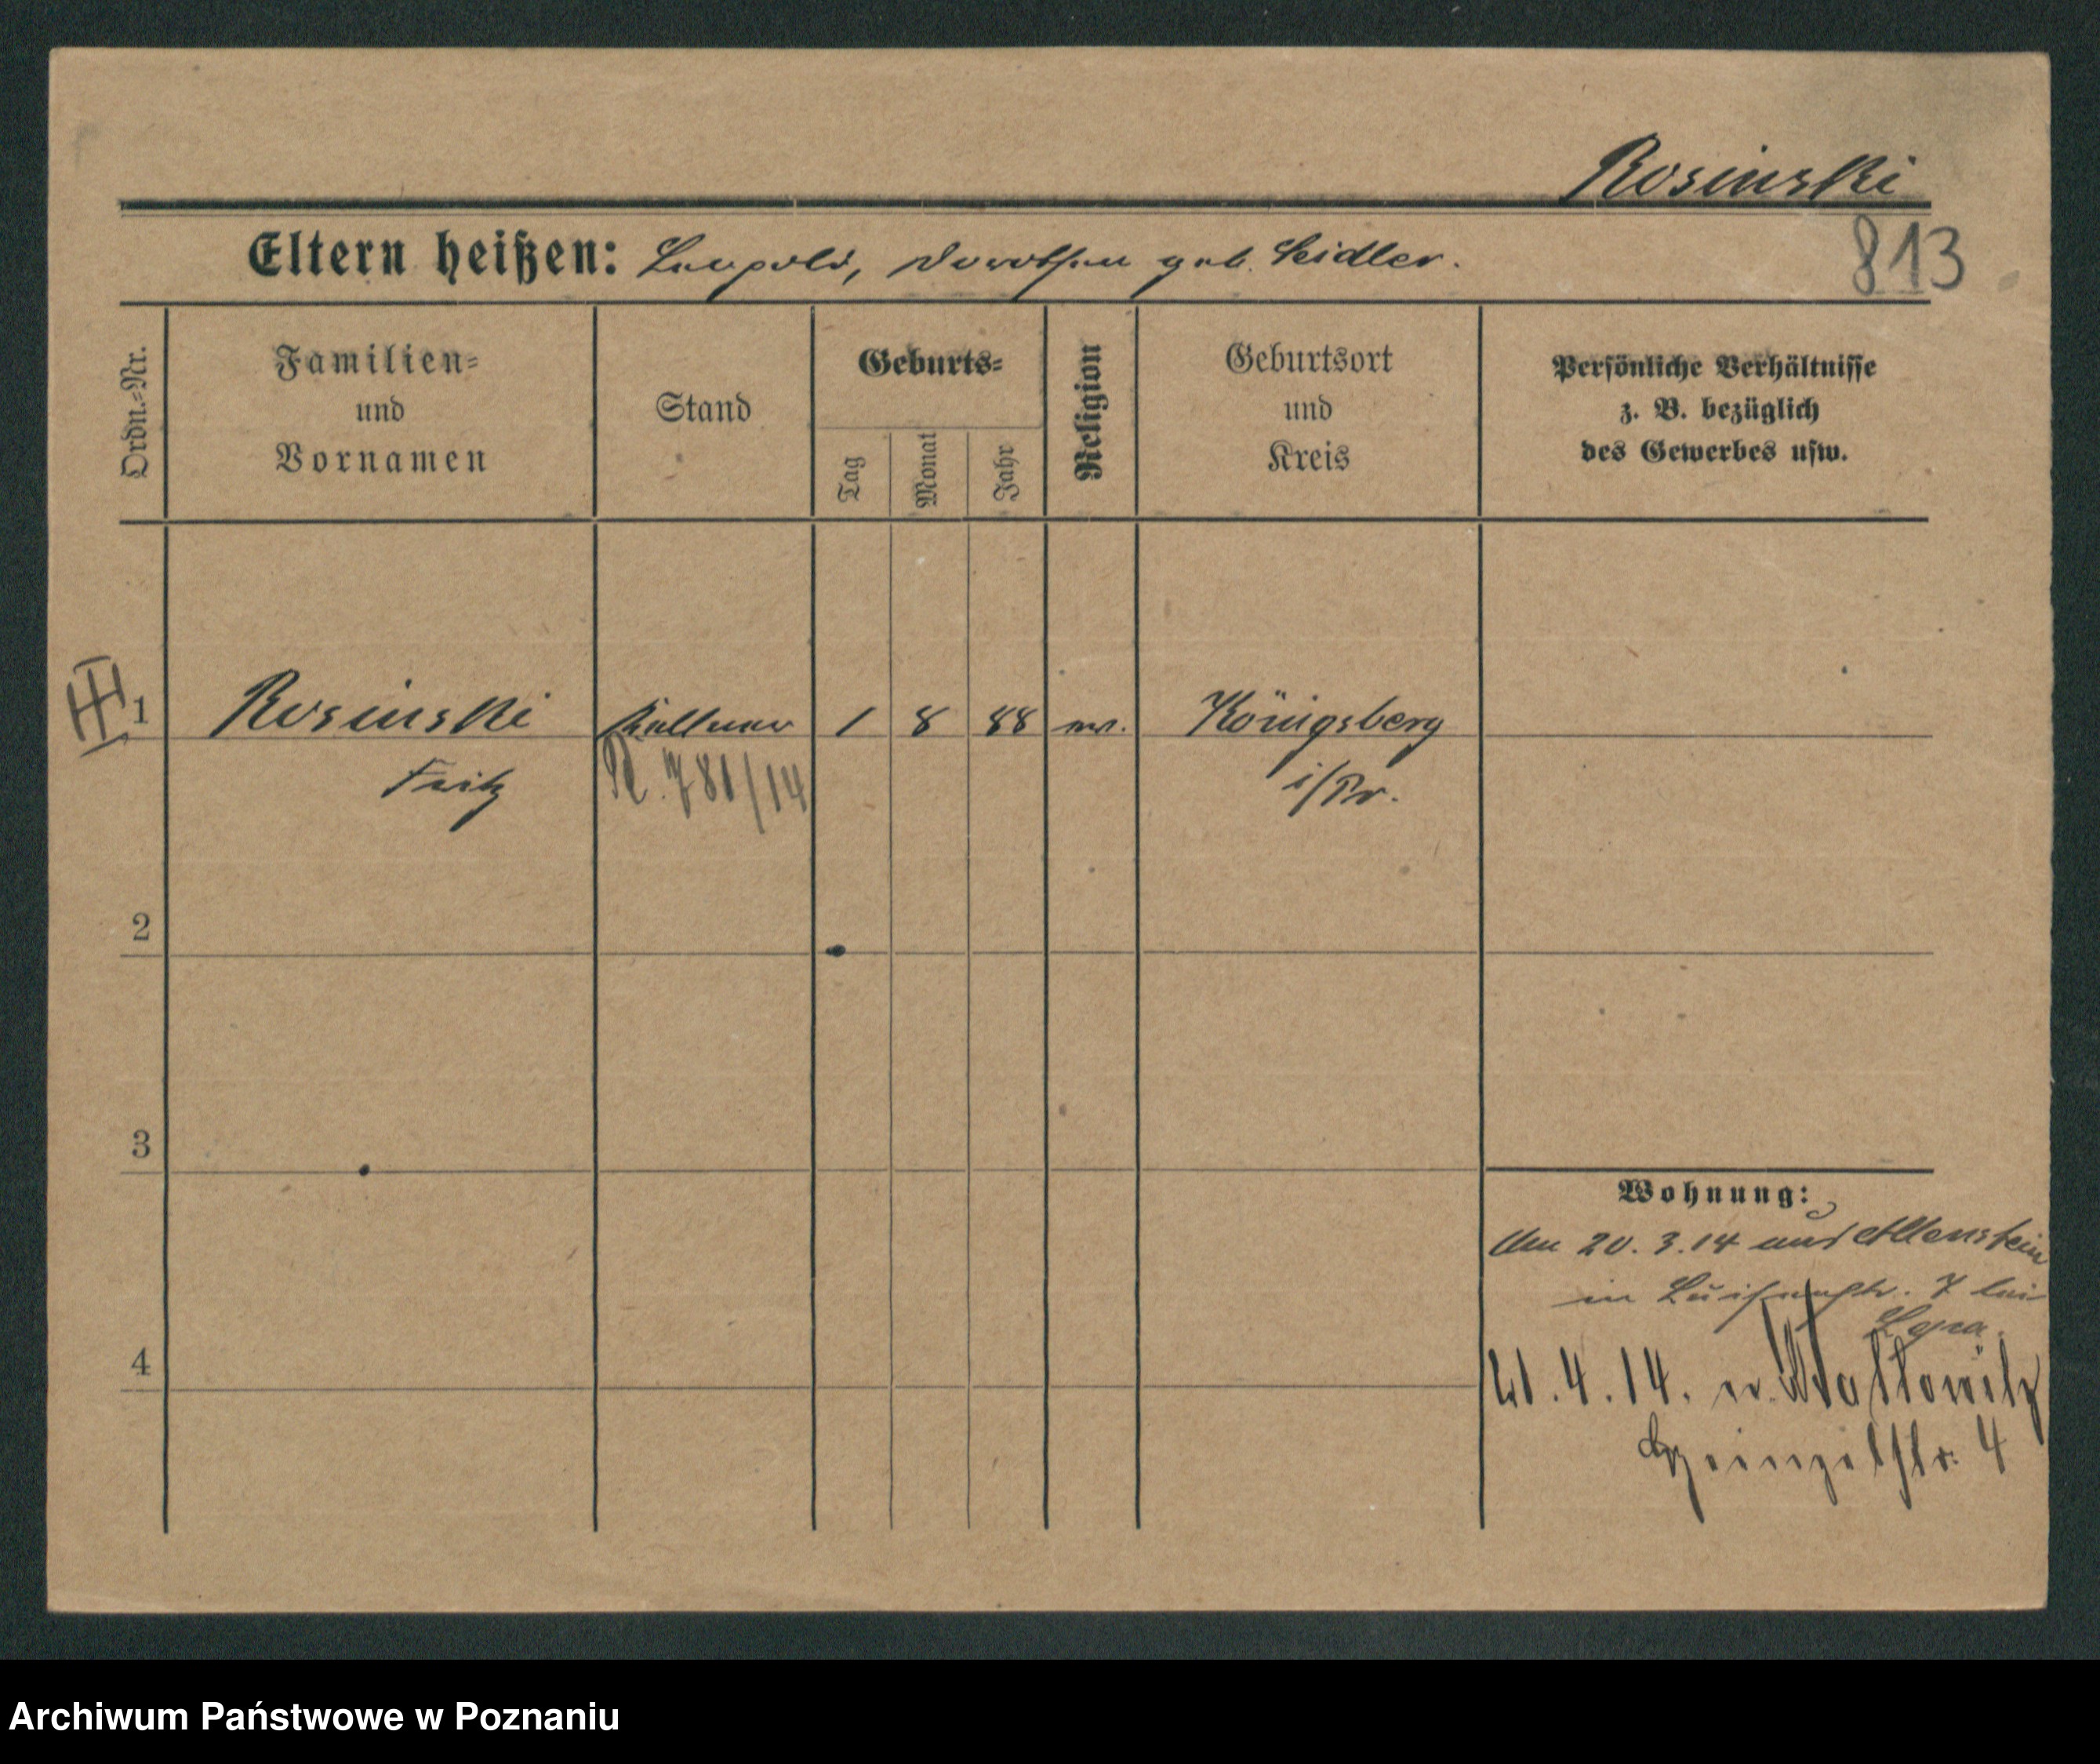 Rosinski
Eltern heißen: Leopold, Dorothea geb. Seidler.
813
Ordn.-Nr.
Familien-
und
Vornamen
Stand
Geburts-
Tag
Monat
Jahr
Religion
Geburtsort
und
Kreis
Persönliche Verhältnisse
z. B. bezüglich
des Gewerbes usw.
1 Rosinski Kellner 1 8 88 ev. Königsberg
Fritz 781/14 i/Pr.
2
3
4
Wohnung:
Am 20.3.14 aus Allenstein
in Luisenstr. 7 bei
21.4.14. n. Kattowitz
Heinzelstr. 4
Archiwum Państwowe w Poznaniu